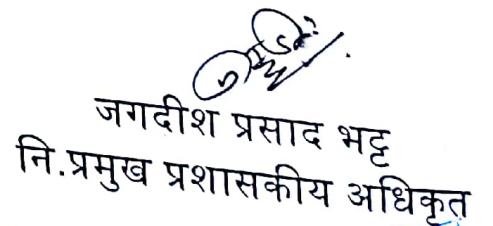 जगदीश प्रसाद भट्ट
नि.प्रमुख प्रशासकीय अधिकृत